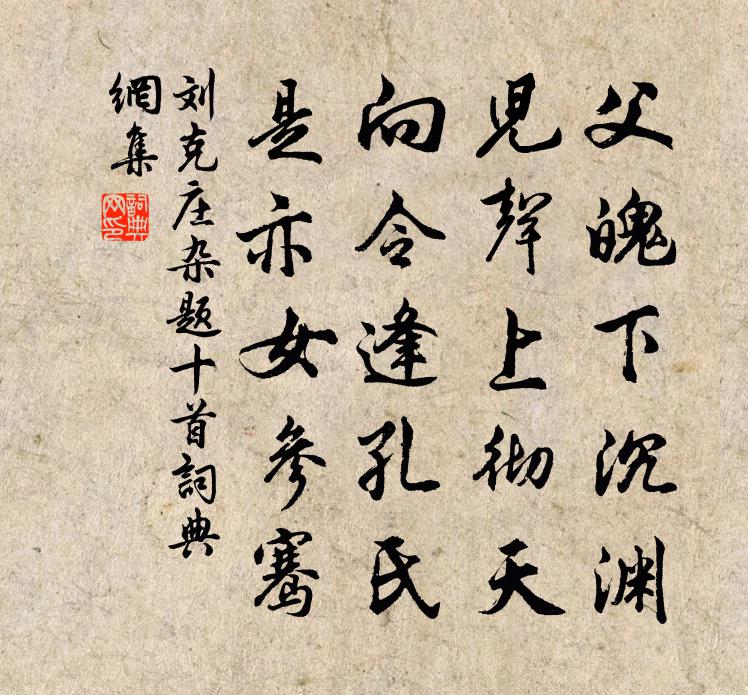 父魄下沉渊
児聲上彻天
向令逢孔氏
是亦女參骞
刘克庄杂题十首詞典
網集
詞典網印